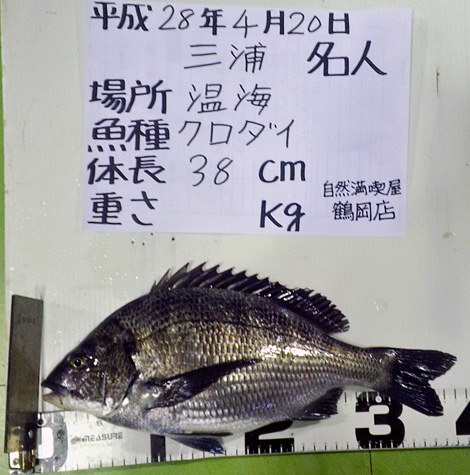 平成28年4月20日
三浦 名人
場所 温海
魚種 クロダイ
体長 38 cm
重さ Kg
自然満喫屋
鶴岡店
0 MEASURE 1 2 3 4